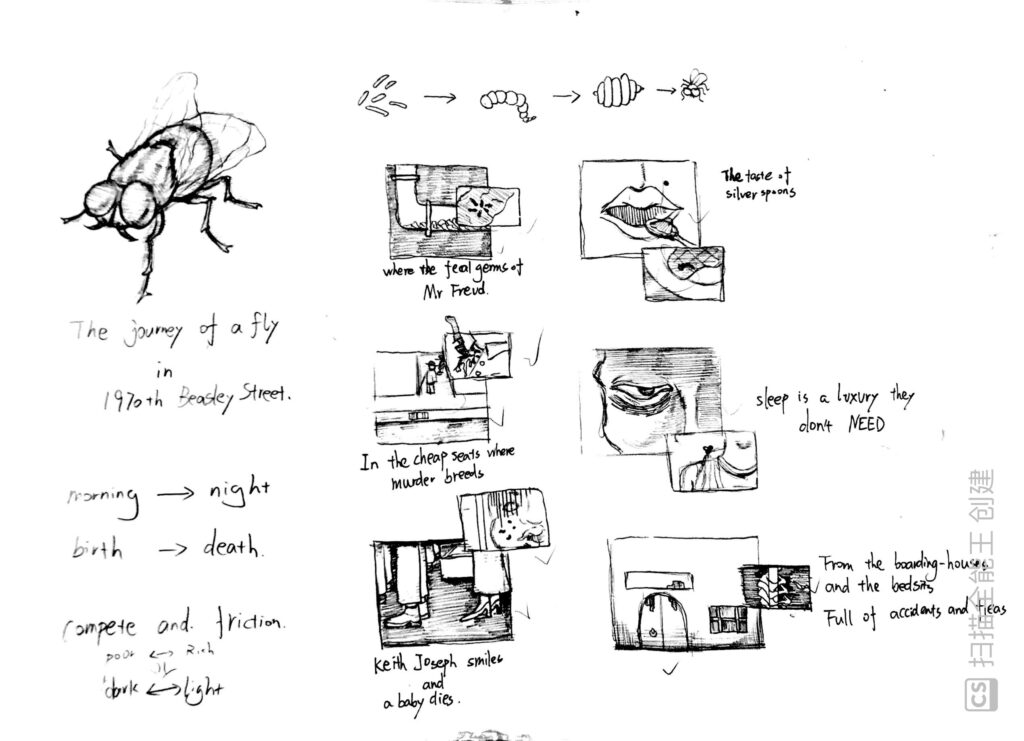 The journey of a fly
in
1970th Beasley Street.
morning → night
birth → death.
compete and friction.
poor ↔ Rich
dark ↔ light
where the fecal germs of
Mr Freud.
In the cheap seats where
murder breeds
Keith Joseph smiles
and
a baby dies.
The taste of
silver spoons
sleep is a luxury they
don't NEED
From the boarding-houses
and the bedsits
Full of accidents and fleas
CS 扫描全能王 创建